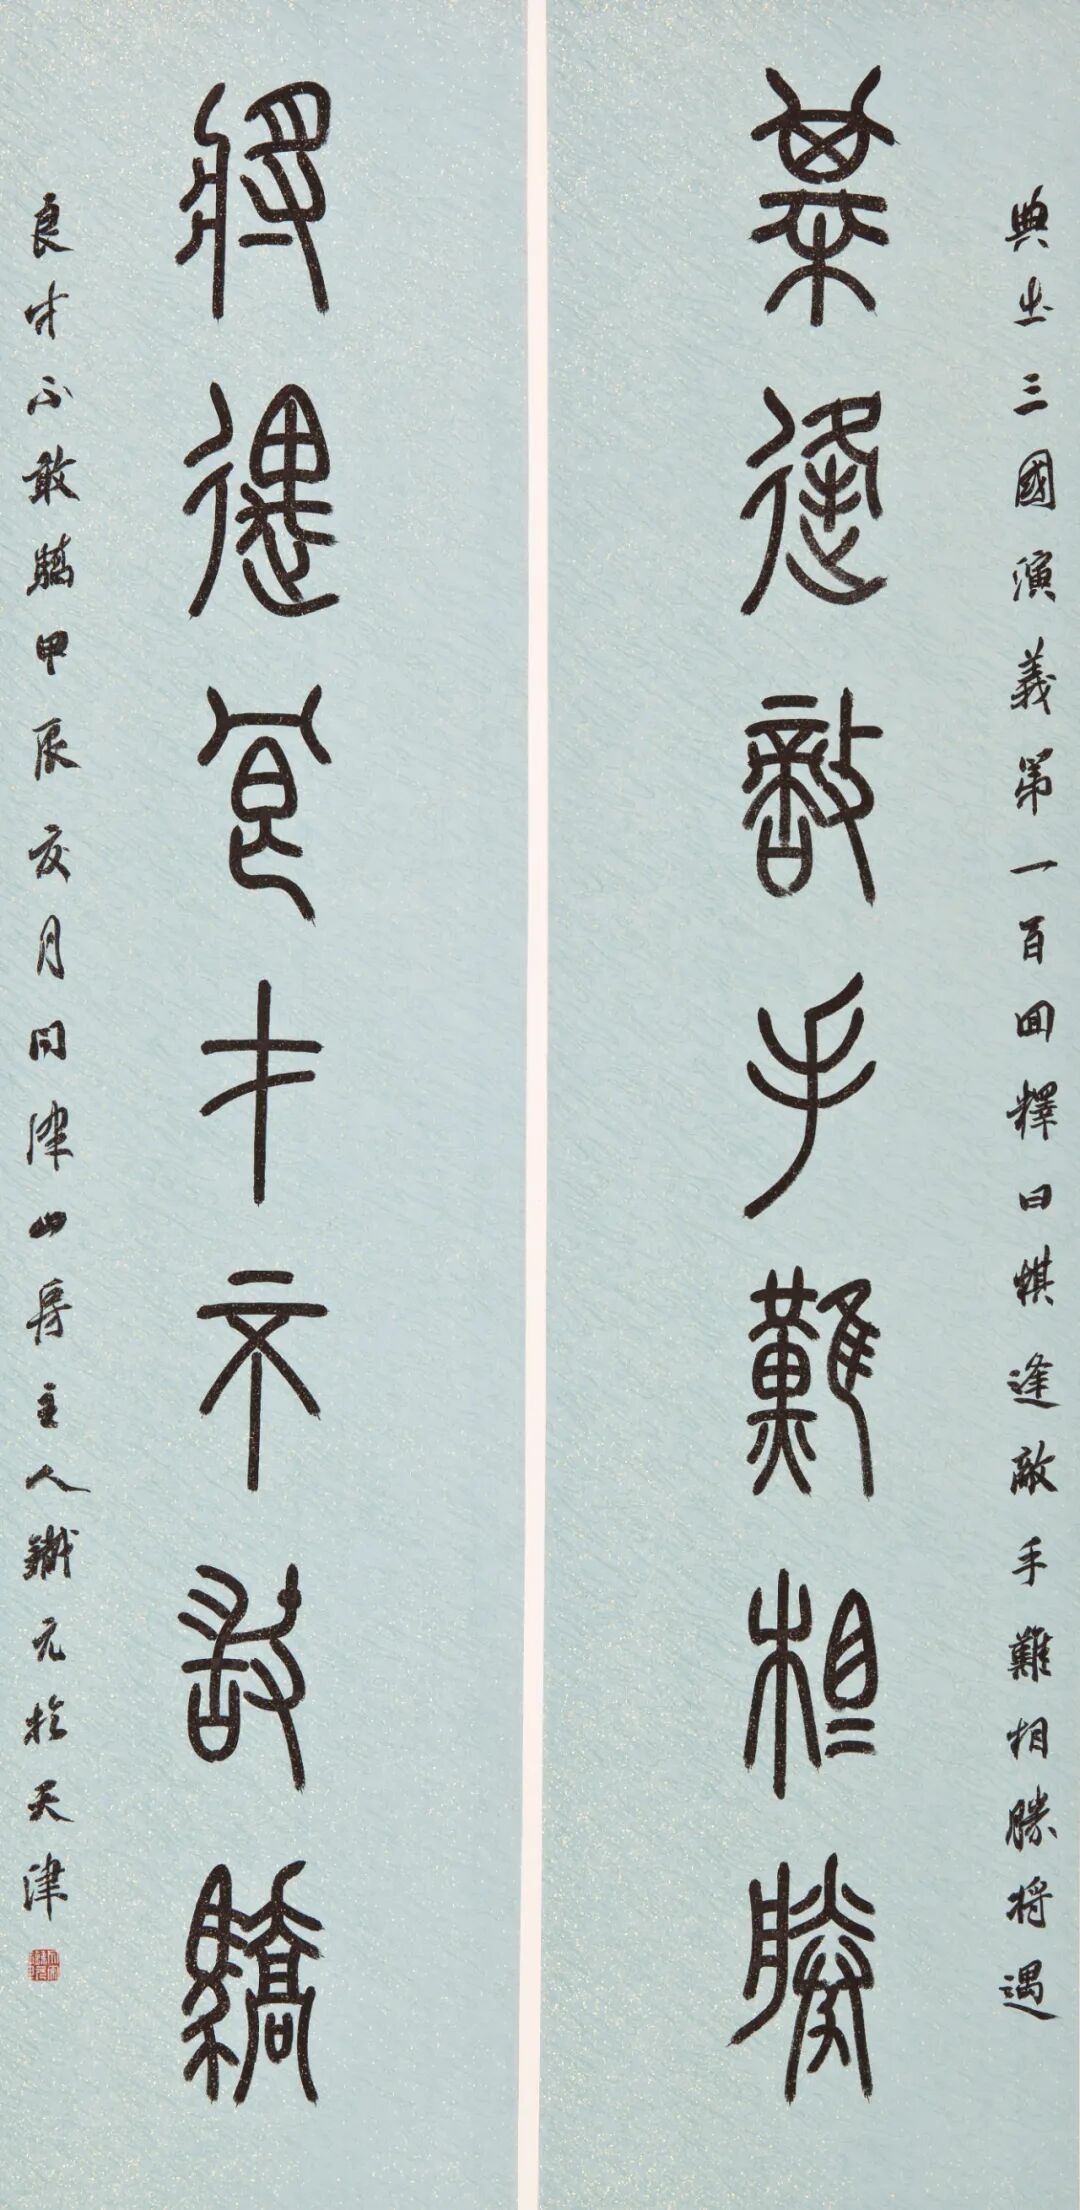 典出三國演義第一百囬釋曰棋逢敵手難相勝將遇
棊逢敵手難相勝
將遇良才不敢驕
良才不敢驕甲辰亥月問津山房主人鐵元於天津